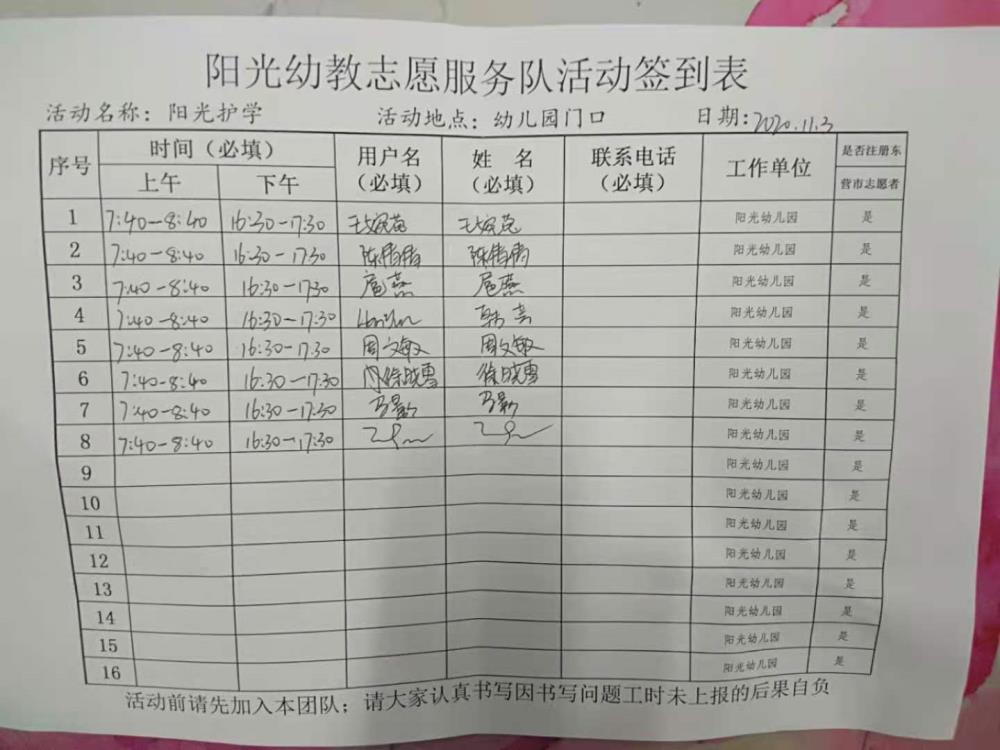 阳光幼教志愿服务队活动签到表
活动名称：阳光护学 活动地点：幼儿园门口 日期：2020.11.3
序号 时间（必填） 用户名（必填） 姓 名（必填） 联系电话（必填） 工作单位 是否注册东营市志愿者
上午 下午
1 7:40-8:40 16:30-17:30 阳光幼儿园 是
2 7:40-8:40 16:30-1730 陈倩倩 陈倩倩 阳光幼儿园 是
3 7:40-8:40 16:30-1730 扈燕 扈燕 阳光幼儿园 是
4 7:40-8:40 16:30-17:30 韩芸 阳光幼儿园 是
5 7:40-8:40 16:30-17:30 周文敏 周文敏 阳光幼儿园 是
6 7:40-8:40 16:30-17:30 徐晓雪 徐晓雪 阳光幼儿园 是
7 7:40-8:40 16:30-17:30 阳光幼儿园 是
8 7:40-8:40 16:30-17:30 阳光幼儿园 是
9 阳光幼儿园 是
10 阳光幼儿园 是
11 阳光幼儿园 是
12 阳光幼儿园 是
13 阳光幼儿园 是
14 阳光幼儿园 是
15 阳光幼儿园 是
16 阳光幼儿园 是
活动前请先加入本团队；请大家认真书写因书写问题工时未上报的后果自负